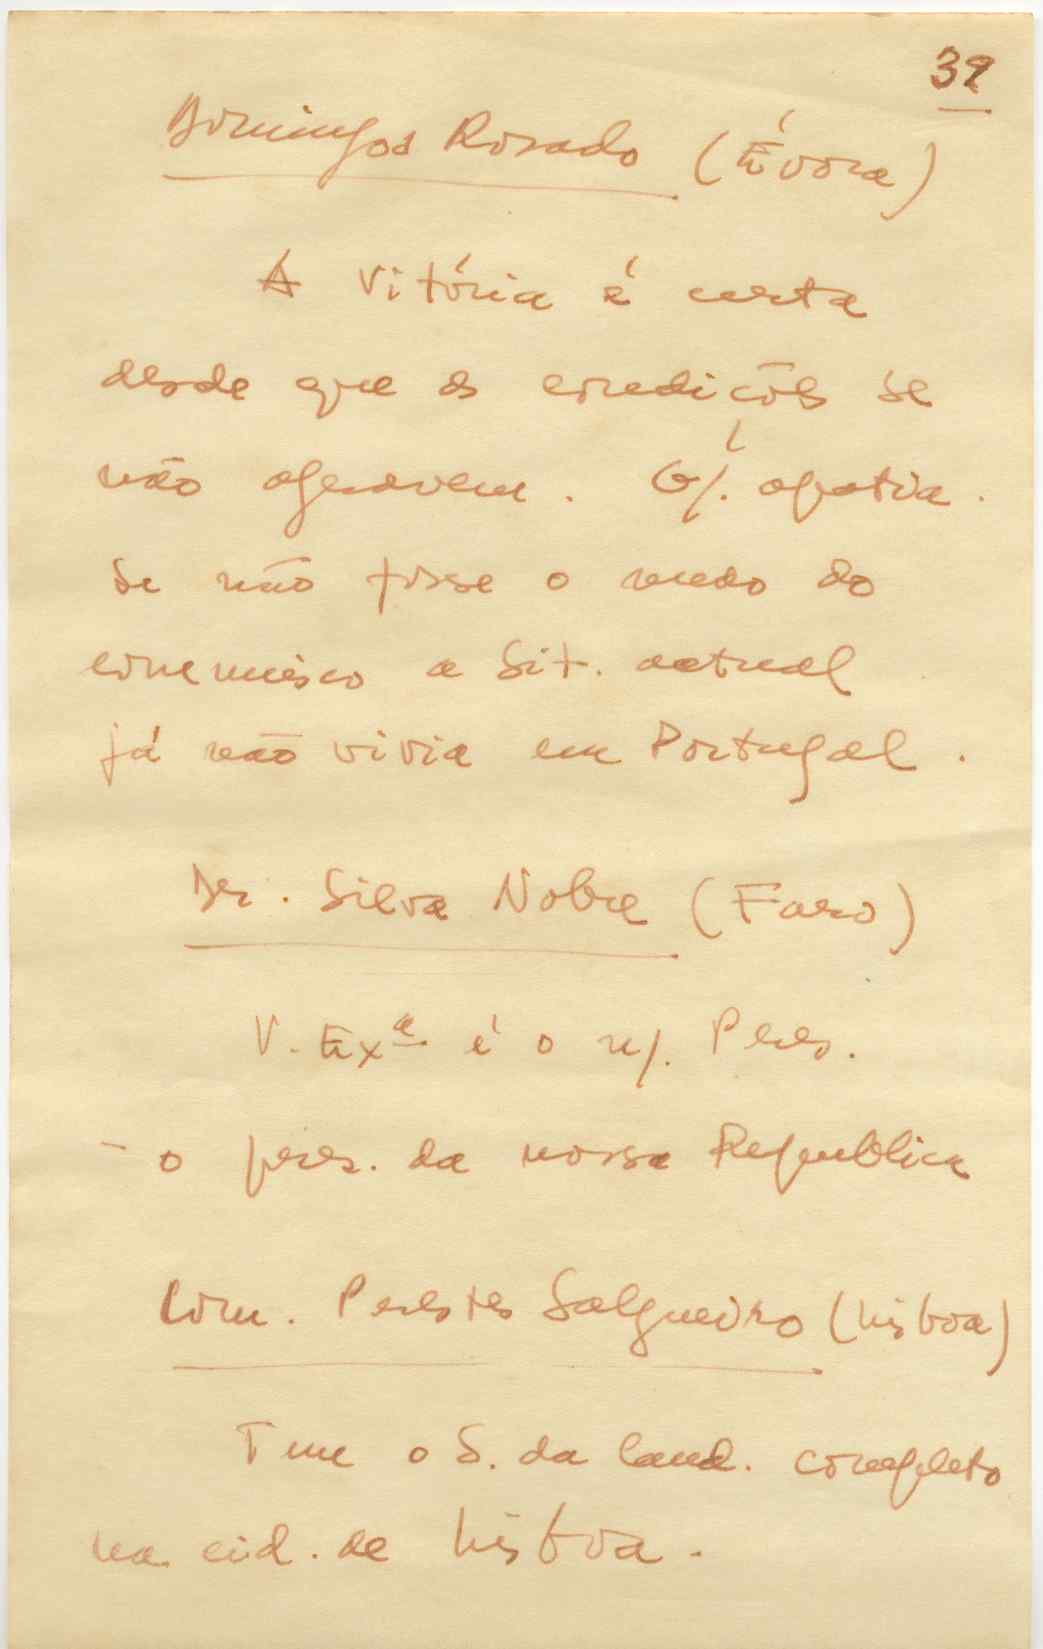 39
Domingos Rosado (Évora)
A Vitória é certa
desde que as condições se
não agravem. G/. apatia.
Se não fosse o medo do
comunismo a Sit. actual
já não vivia em Portugal.
Dr. Silva Nobre (Faro)
V. Exª é o n/. Pres.
- o pres. da nossa Republica
Com. Prestes Salgueiro (Lisboa)
Tem o S. da Cand. completo
na cid. de Lisboa.